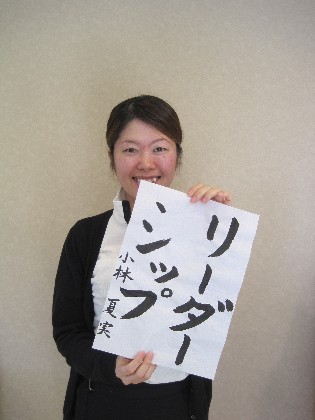 リーダー
シップ
小林 夏実